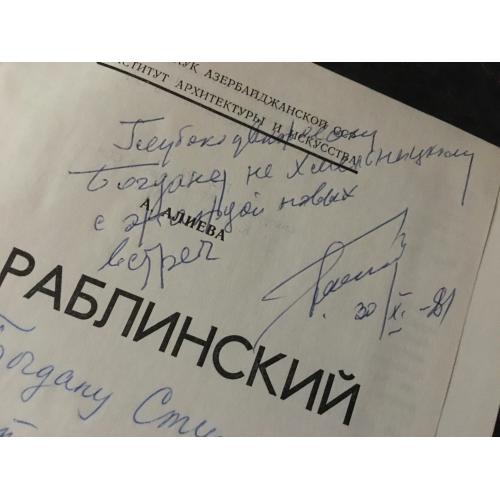 УК АЗЕРБАЙДЖАНСКОЙ ССР
ИНСТИТУТ АРХИТЕКТУРЫ И ИСКУССТВА
Глубокоуважаемому
Богдану не Хмельницкому
с жаждой новых
встреч
А. АЛИЕВА
30/XI-81
РАБЛИНСКИЙ
Богдану